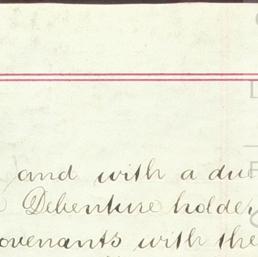 and with a due
Debenture holder
ovenants with the